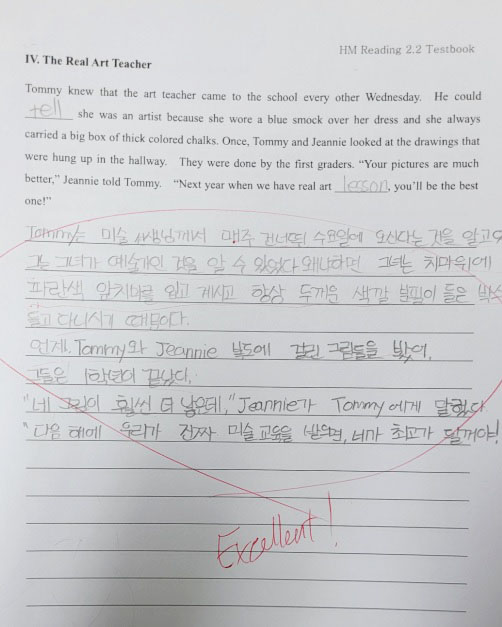 HM Reading 2.2 Testbook
IV. The Real Art Teacher
Tommy knew that the art teacher came to the school every other Wednesday. He could
tell she was an artist because she wore a blue smock over her dress and she always
carried a big box of thick colored chalks. Once, Tommy and Jeannie looked at the drawings that
were hung up in the hallway. They were done by the first graders. “Your pictures are much
better,” Jeannie told Tommy. “Next year when we have real art lesson, you’ll be the best
one!”
Tommy는 미술 선생님께서 매주 건너뛰 수요일에 오신다는 것을 알고
그는 그녀가 예술가인 것을 알 수 있었다 왜냐하면 그녀는 치마위에
파란색 앞치마를 입고 계시고 항상 두꺼운 색깔 분필이 들은
들고 다니시기 때문이다.
언제, Tommy와 Jeannie 복도에 걸린 그림들을 봤어,
그들은 1학년이 끝났다.
"네 그림이 훨씬 더 낳은데," Jeannie가 Tommy에게 말했다
"다음 해에 우리가 진짜 미술 교육을 받으면, 너가 최고가 될꺼야!
Excellent!